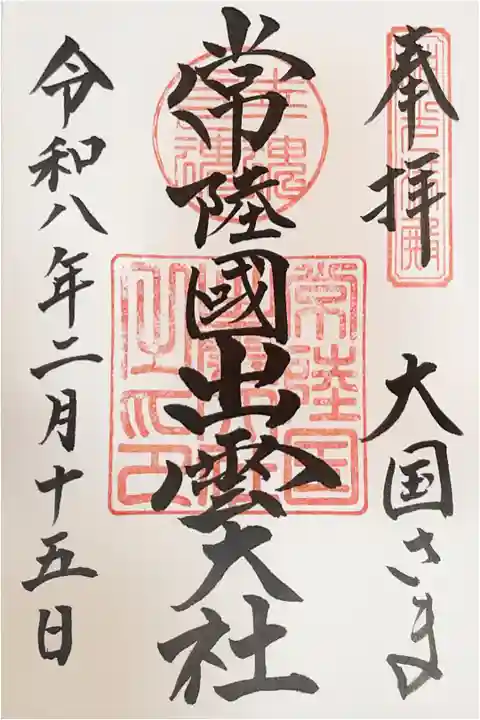 奉拝
大国さま
常陸國出雲大社
令和八年二月十五日
常陸国